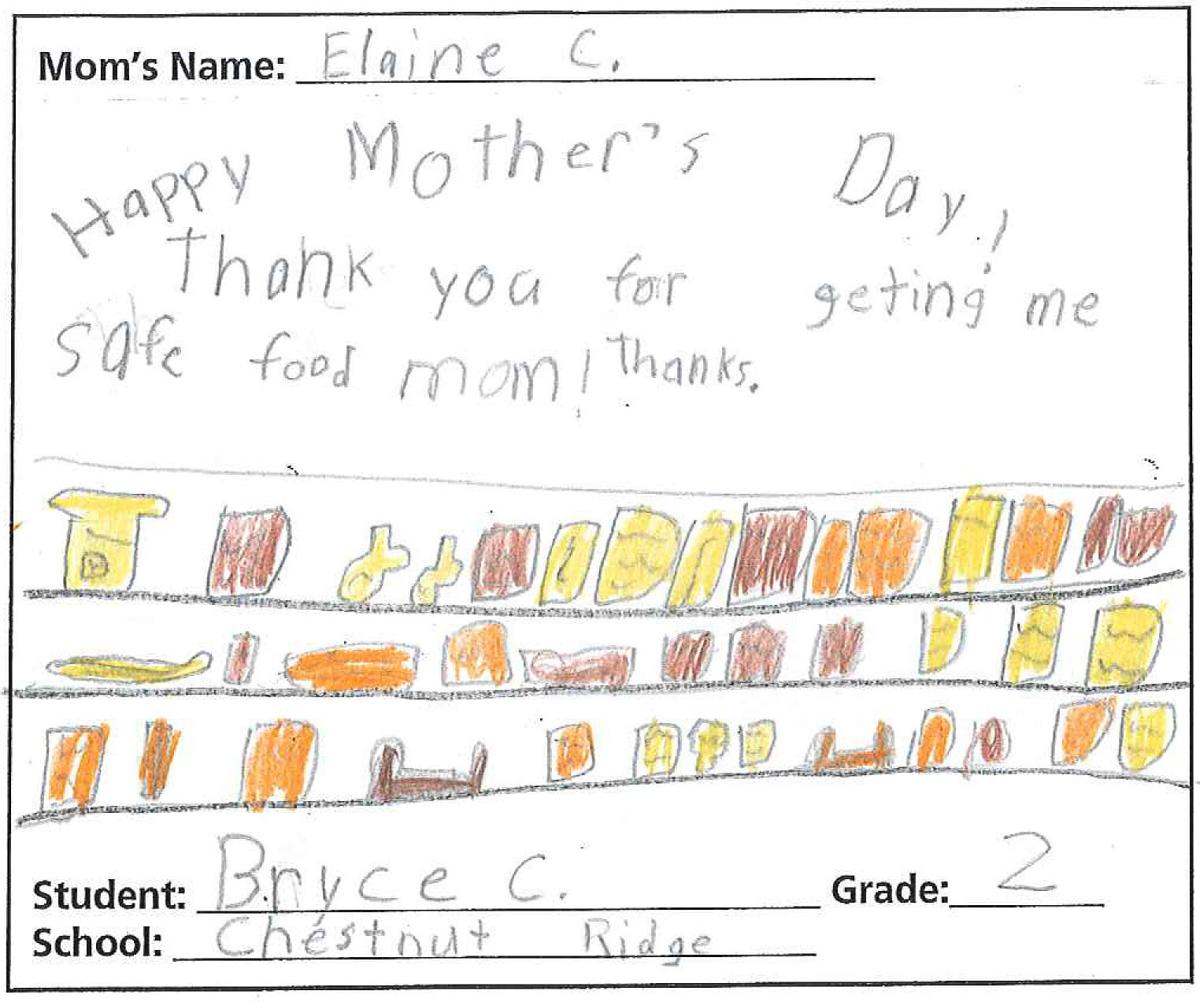 Mom's Name: Elaine C.
Happy Mother's Day!
Thank you for geting me
safe food mom! Thanks.
Student: Bryce C. Grade: 2
School: Chestnut Ridge